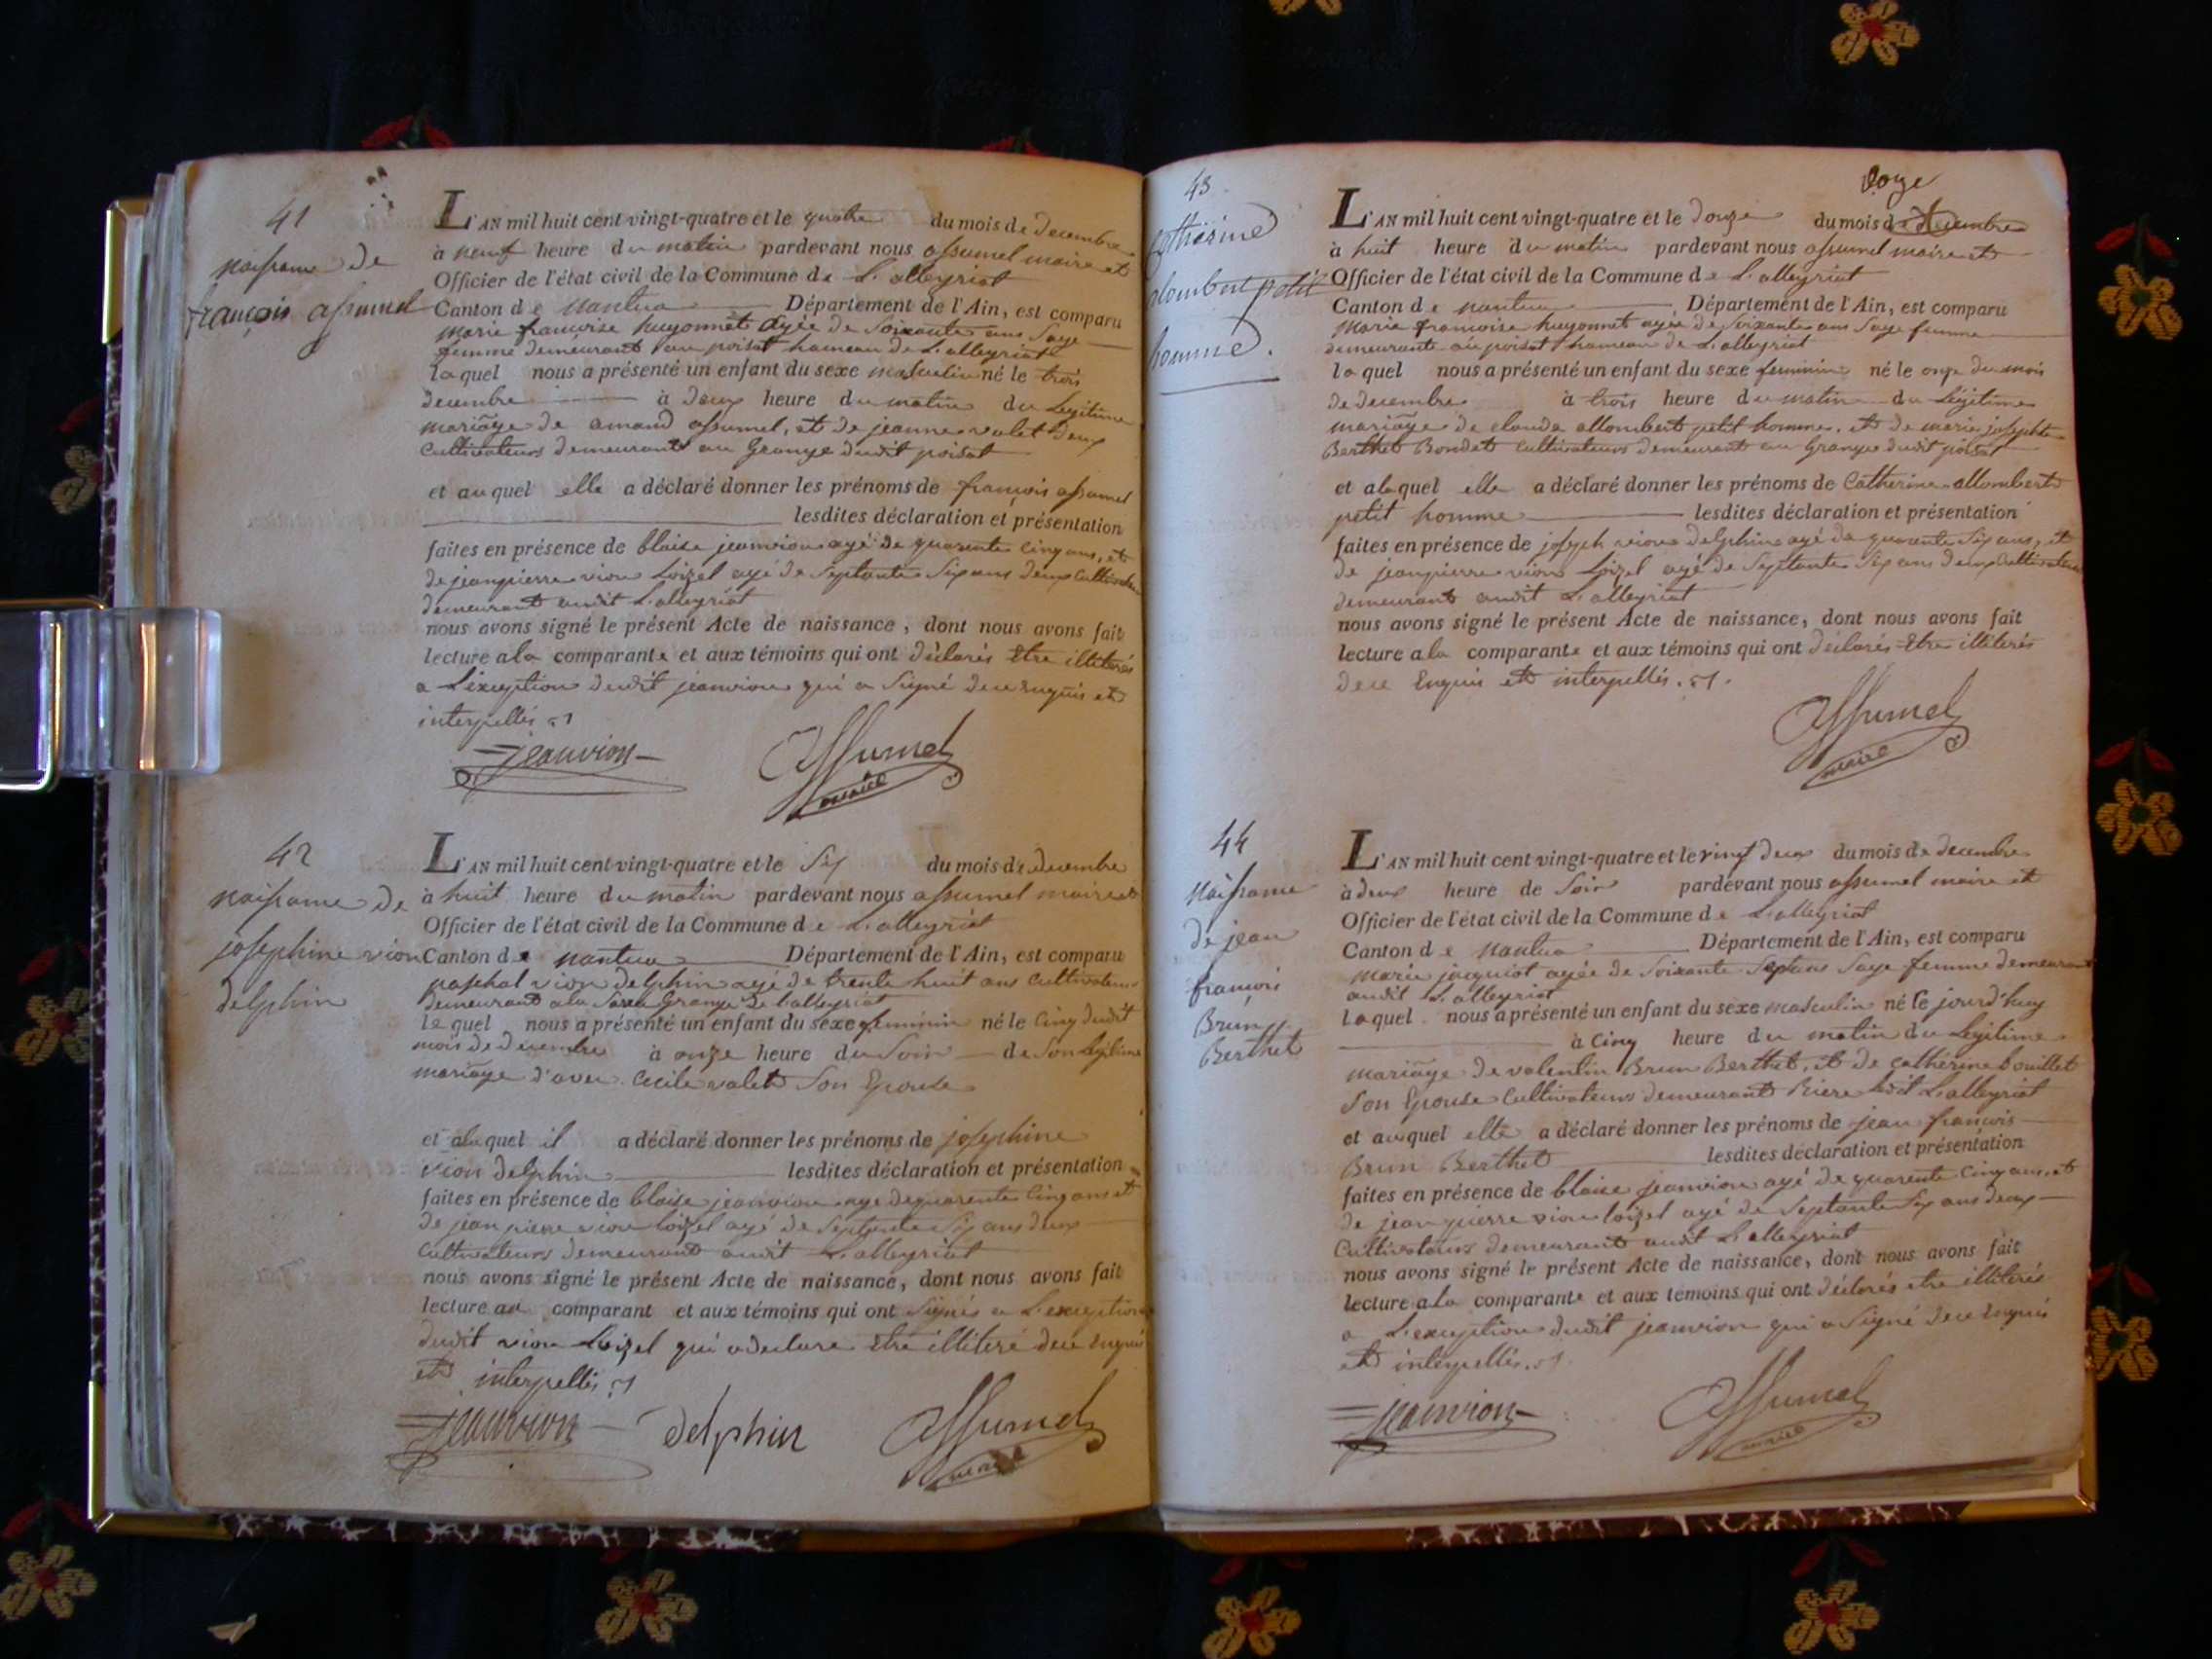 41
naissance de
françois assumel
L'AN mil huit cent vingt-quatre et le quatre du mois de decembre
à neuf heure du matin pardevant nous assumel maire et
Officier de l'état civil de la Commune de L'alleyriat
Canton de nantua Département de l'Ain, est comparu
marie francoise huyonnet agée de soixante ans sage
femme demeurant au poisat hameau de L'alleyriat
laquel nous a présenté un enfant du sexe masculin né le trois
decembre à deux heure du matin du Legitime
mariage de amand assumel, et de jeanne valet deux
cultivateurs demeurant au Grange dudit poisat
et auquel elle a déclaré donner les prénoms de françois assumel
lesdites déclaration et présentation
faites en présence de blaise jeanvion agé de quarente cinq ans, et
de jeanpierre vion Loizel agé de septante six ans deux cultivateurs
demeurant audit L'alleyriat
nous avons signé le présent Acte de naissance, dont nous avons fait
lecture a la comparante et aux témoins qui ont déclarés Etre illiterés
a L'exception dudit jeanvion qui a signé dece enquis et
interpellés
jeanvion
assumel
maire
42
naissance de
josephine vion
delphin
L'AN mil huit cent vingt-quatre et le six du mois de decembre
à huit heure du matin pardevant nous assumel maire et
Officier de l'état civil de la Commune de L'alleyriat
Canton de nantua Département de l'Ain, est comparu
paschal vion delphin agé de trente huit ans cultivateur
demeurant a la Grange de l'alleyriat
lequel nous a présenté un enfant du sexe feminin né le cinq dudit
mois de decembre à onze heure du Soir de Son legitime
mariage d'avec cecile valet Son Epouse
et alaquel il a déclaré donner les prénoms de josephine
vion delphin lesdites déclaration et présentation
faites en présence de blaise jeanvion age de quarente cinq ans et
de jean pierre vion loizel agé de septante six ans deux
cultivateurs demeurant audit L'alleyriat
nous avons signé le présent Acte de naissance, dont nous avons fait
lecture au comparant et aux témoins qui ont signés a L'exception
dudit vion Loizel qui a declare Etre illiteré dece enquis
et interpellés
jeanvion
delphin
assumel
maire
43
Catherine
alombert petit
homme.
douze
L'AN mil huit cent vingt-quatre et le douze du mois de decembre
à huit heure du matin pardevant nous assumel maire et
Officier de l'état civil de la Commune de L'alleyriat
Canton de nantua Département de l'Ain, est comparu
marie francoise huyonnet agée de soixante ans sage femme
demeurante au poisat hameau de L'alleyriat
laquel nous a présenté un enfant du sexe feminin né le onze du mois
de decembre à trois heure du matin du Légitime
mariage de claude allombert petit homme, et de marie josephte
Berthet Bondet cultivateurs demeurant au Grange dudit poisat
et alaquel elle a déclaré donner les prénoms de Catherine allombert
petit homme lesdites déclaration et présentation
faites en présence de joseph vion delphin agé de quarente six ans, et
de jeanpierre vion Loizel agé de septante six ans deux cultivateurs
demeurant audit L'alleyriat
nous avons signé le présent Acte de naissance, dont nous avons fait
lecture a la comparante et aux témoins qui ont déclarés Etre illiterés
dece Enquis et interpellés.
assumel
maire
44
naissance
de jean
françois
Brun
Berthet
L'AN mil huit cent vingt-quatre et le vingt deux du mois de decembre
à deux heure de Soir pardevant nous assumel maire et
Officier de l'état civil de la Commune de L'alleyriat
Canton de nantua Département de l'Ain, est comparu
marie jacquiot agée de soixante sept ans sage femme demeurant
audit L'alleyriat
laquel nous a présenté un enfant du sexe masculin né le jourd'huy
à cinq heure du matin du Legitime
mariage de valentin Brun Berthet, et de catherine bouillet
Son Epouse cultivateurs demeurant Riere ledit L'alleyriat
et auquel elle a déclaré donner les prénoms de jean françois
Brun Berthet lesdites déclaration et présentation
faites en présence de blaise jeanvion agé de quarente cinq ans et
de jeanpierre vion loizel agé de septante six ans deux
cultivateurs demeurant audit L'alleyriat
nous avons signé le présent Acte de naissance, dont nous avons fait
lecture a la comparante et aux témoins qui ont déclarés etre illiterés
a L'exception dudit jeanvion qui a signé dece enquis
et interpellés.
jeanvion
assumel
maire